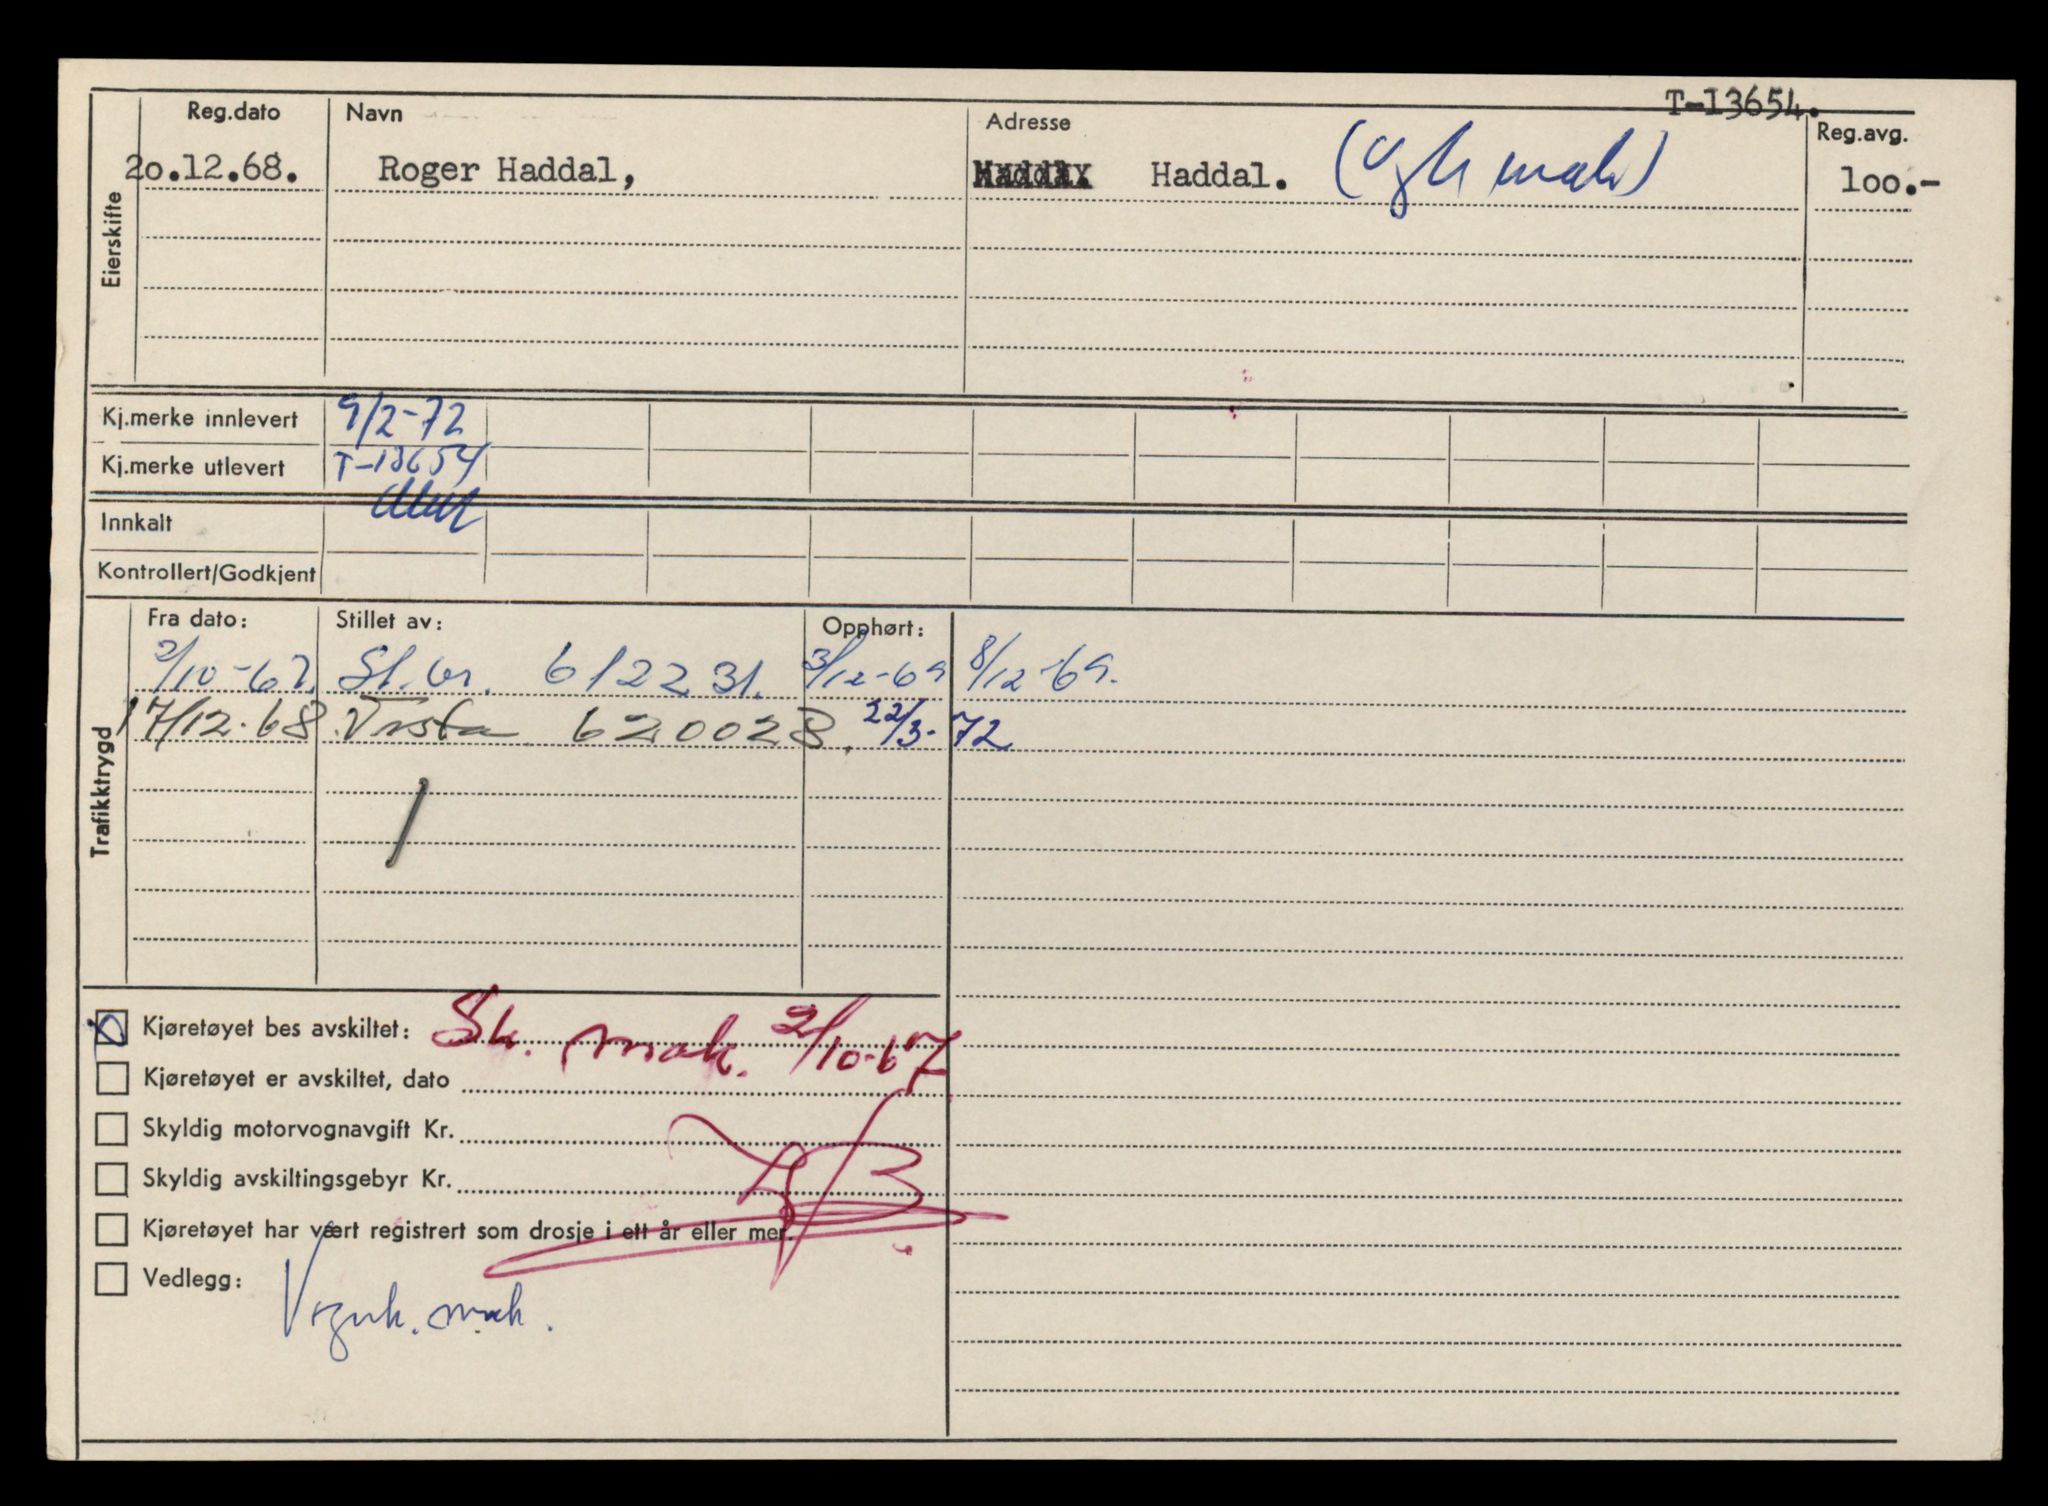 T-13654.
Reg.dato Navn Adresse Reg.avg.
Eierskifte
20.12.68. Roger Haddal, Haddal. 100.-
Kj.merke innlevert 9/2-72
Kj.merke utlevert T-13654
Innkalt
Kontrollert/Godkjent
Trafikktrygd
Fra dato: Stillet av: Opphørt:
2/10-67. St.br. 612231. 3/12-69 8/12-69.
17/12-68 Vesta 620028. 22/3-72
Kjøretøyet bes avskiltet: Sk. mak. 2/10-67
Kjøretøyet er avskiltet, dato
Skyldig motorvognavgift Kr.
Skyldig avskiltingsgebyr Kr.
Kjøretøyet har vært registrert som drosje i ett år eller mer.
Vedlegg:
Vognk. mak.